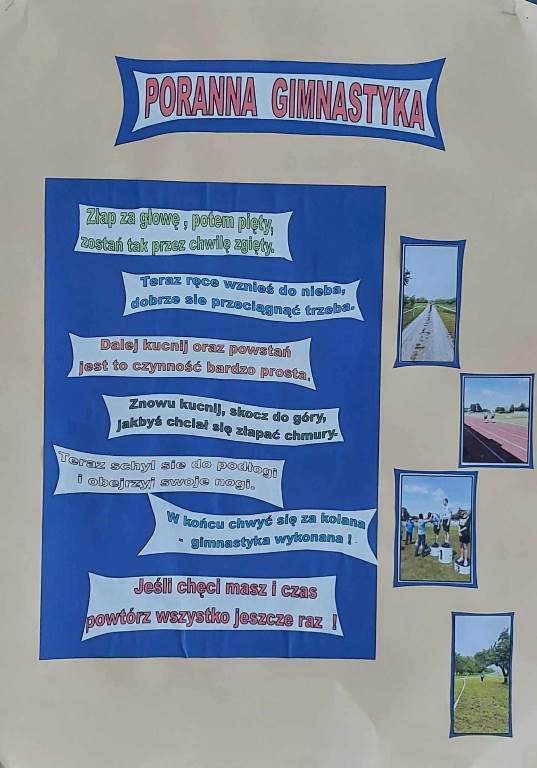 PORANNA GIMNASTYKA
Złap za głowę , potem pięty,
zostań tak przez chwilę zgięty.
Teraz ręce wznieś do nieba,
dobrze sie przeciągnąć trzeba.
Dalej kucnij oraz powstań
jest to czynność bardzo prosta.
Znowu kucnij, skocz do góry,
jakbyś chciał się złapać chmury.
Teraz schyl sie do podłogi
i obejrzyj swoje nogi.
W końcu chwyć się za kolana
- gimnastyka wykonana !
Jeśli chęci masz i czas
powtórz wszystko jeszcze raz !